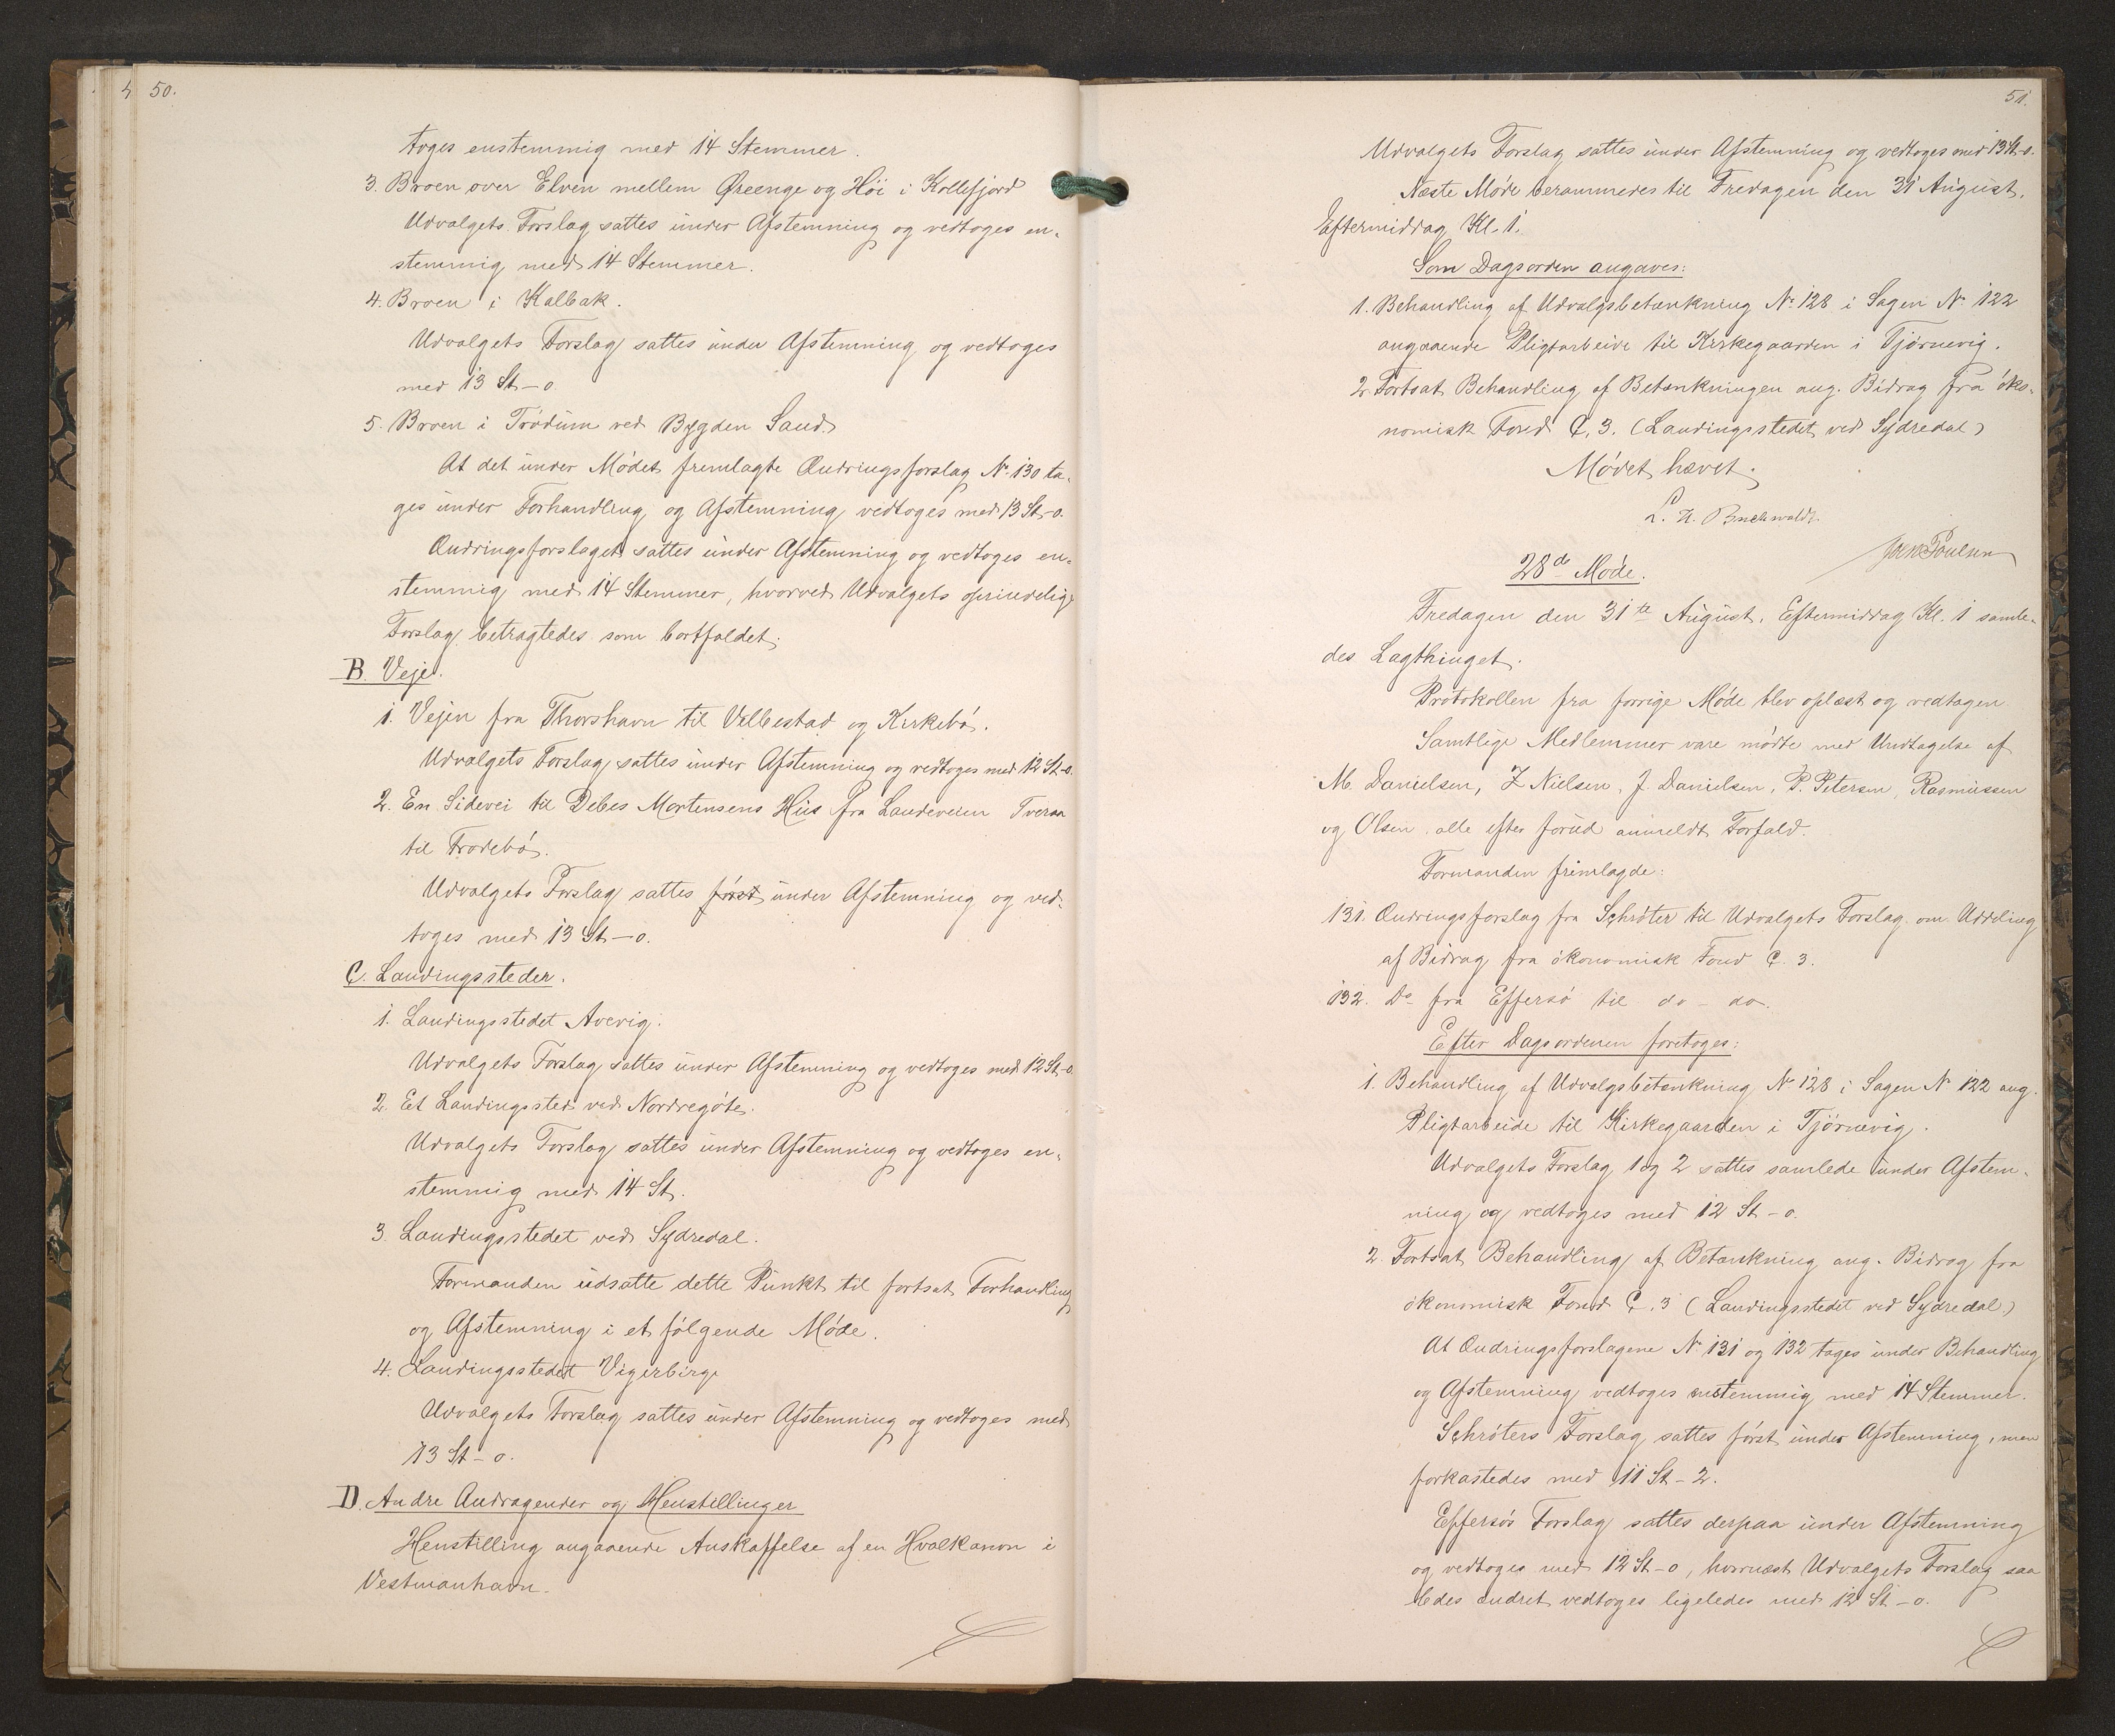 50.
toges enstemmig med 14 Stemmer.
3. Broen over Elven mellem Øreenge og Höi i Kollefjord
Udvalgets Forslag sattes under Afstemning og vedtoges en-
stemmig med 14 Stemmer.
4. Broen i Kalbak.
Udvalgets Forslag sattes under Afstemning og vedtoges
med 13 St - 0.
5. Broen i Trödum ved Bygden Sand.
At det under Mödet fremlagte Ændringsforslag No 130 ta-
ges under Forhandling og Afstemning vedtoges med 13 St - 0.
Ændringsforslaget sattes under Afstemning og vedtoges en-
stemmig med 14 Stemmer, hvorved Udvalgets oprindelige
Forslag betragtedes som bortfaldet.
B. Veje.
1. Vejen fra Thorshavn til Velbestad og Kirkebö.
Udvalgets Forslag sattes under Afstemning og vedtoges med 12 St - 0.
2. En Sidevei til Debes Mortensens Hus fra Landeveien Tveraa
til Frodebö.
Udvalgets Forslag sattes först under Afstemning og ved-
toges med 13 St - 0.
C. Landingssteder.
1. Landingsstedet Averig.
Udvalgets Forslag sattes under Afstemning og vedtoges med 12 St - 0.
2. Et Landingssted ved Nordregöte.
Udvalgets Forslag sattes under Afstemning og vedtoges en-
stemmig med 14 St.
3. Landingsstedet ved Sydredal.
Formanden udsatte dette Punkt til fortsat Forhandling
og Afstemning i et fölgende Möde.
4. Landingsstedet Vigerbirge
Udvalgets Forslag sattes under Afstemning og vedtoges med
13 St - 0.
D. Andre Andragender og Henstillinger
Henstilling angaaende Anskaffelse af en Hvalkanon i
Vestmanhavn.
51.
Udvalgets Forslag sattes under Afstemning og vedtoges med 13 St - 0.
Næste Möde berammedes til Fredagen den 31 August,
Eftermiddag Kl. 1.
Som Dagsorden angaves:
1. Behandling af Udvalgsbetænkning No 128 i Sagen No 122
angaaende Pligtarbeide til Kirkegaarden i Tjörnevig.
2. Fortsat Behandling af Betænkningen ang. Bidrag fra öko-
nomisk Fond C, 3. (Landingsstedet ved Sydredal)
Mödet hævet.
L. H. Buchwaldt.
Poulsen
28de Möde.
Fredagen den 31te August, Eftermiddag Kl. 1 samle-
des Lagthinget.
Protokollen fra forrige Möde blev oplæst og vedtagen
Samtlige Medlemmer vare mödte med Undtagelse af
M. Danielsen, Z Nielsen, J. Danielsen, P. Petersen, Rasmussen
og Olsen, alle efter forud anmeldt Forfald.
Formanden fremlagde:
131. Ændringsforslag fra Schröter til Udvalgets Forslag om Uddeling
af Bidrag fra ökonomisk Fond C. 3.
132. Do fra Effersö til do - do.
Efter Dagsordenen foretoges:
1. Behandling af Udvalgsbetænkning No 128 i Sagen No 122 ang.
Pligtarbeide til Kirkegaarden i Tjörnevig.
Udvalgets Forslag 1 og 2 sattes samlede under Afstem-
ning og vedtoges med 12 St - 0.
2. Fortsat Behandling af Betænkning ang. Bidrag fra
ökonomisk Fond C. 3 (Landingsstedet ved Sydredal.)
At Ændringsforslagene No 131 og 132 tages under Behandling
og Afstemning vedtoges enstemmig med 14 Stemmer.
Schröters Forslag sattes först under Afstemning, men
forkastedes med 11 St - 2.
Effersös Forslag sattes derpaa under Afstemning
og vedtoges med 12 St - 0, hvornæst Udvalgets Forslag saa
ledes ændret vedtoges ligeledes med 12 St - 0.